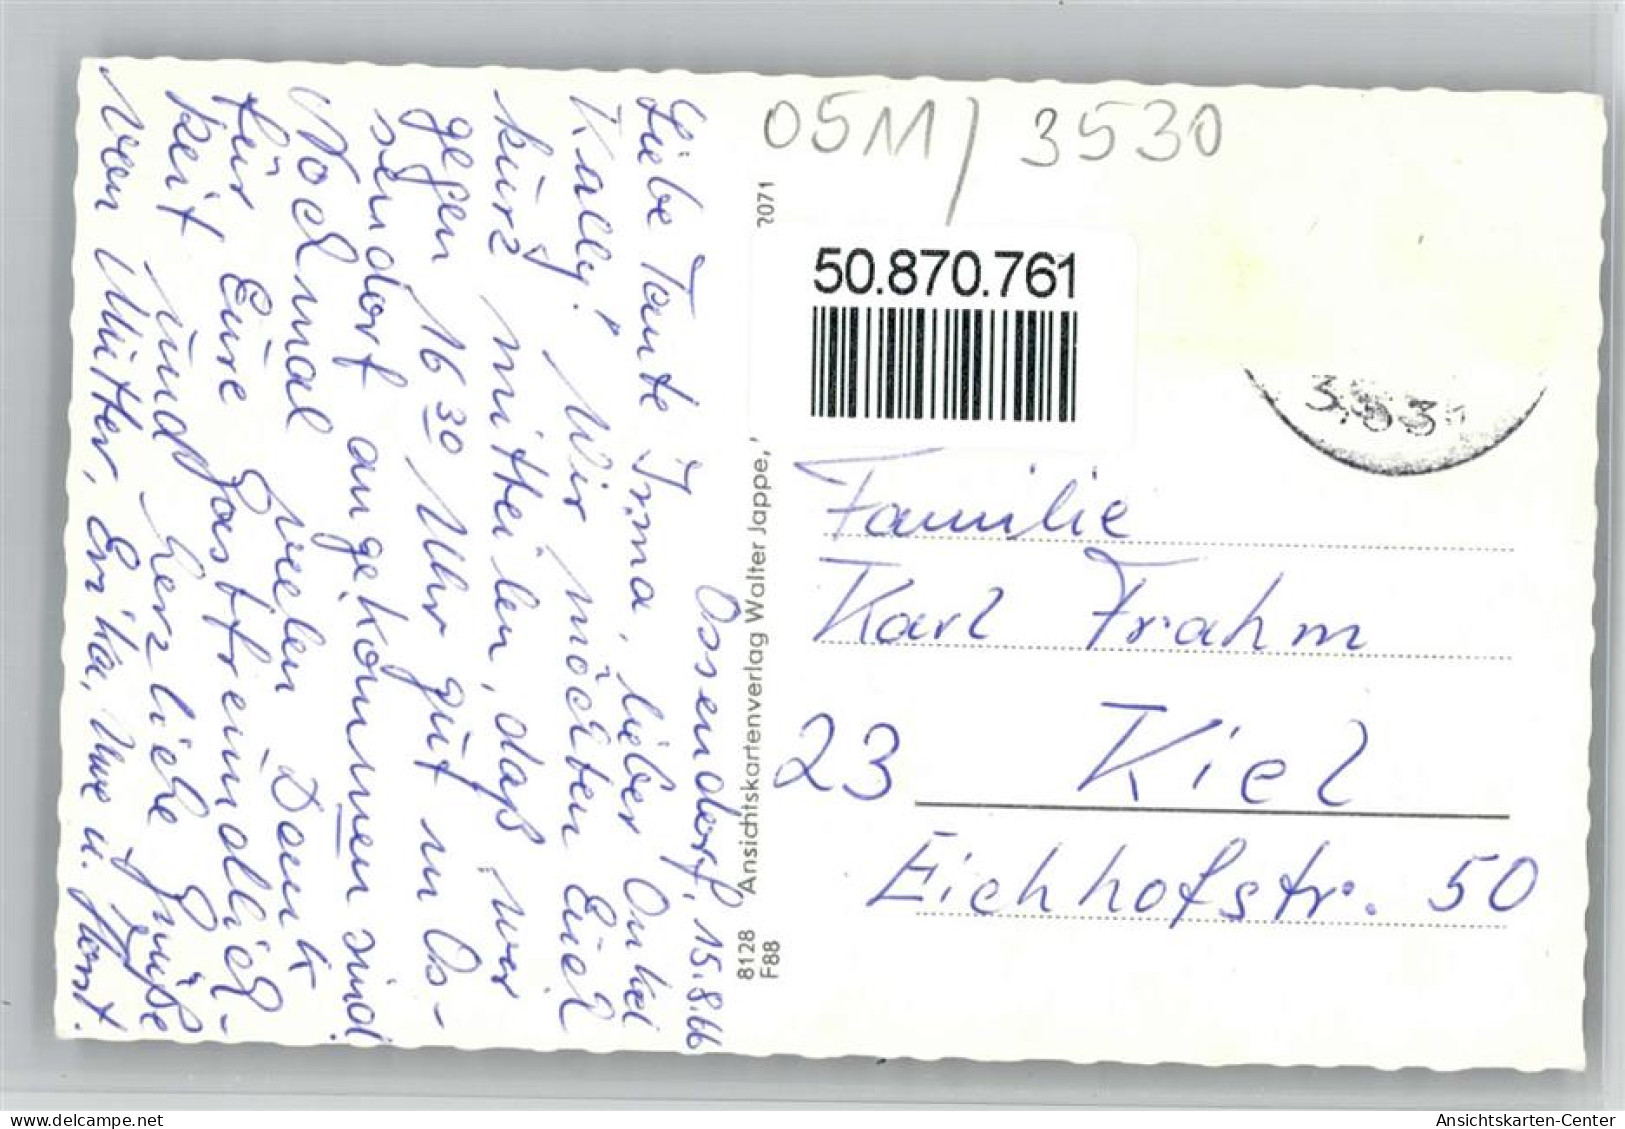 Ossendorf, 15.8.66
Liebe Tante Irma, lieber Onkel
Kally! Wir möchten Euch
kurz mitteilen, daß wir
gegen 16 30 Uhr gut in Os-
sendorf angekommen sind.
Nochmal vielen Dank
für Eure Gastfreundlich-
keit und herzliche Grüße
von Mutter, Erika, Uwe u. Horst.
8128 Ansichtskartenverlag Walter Jappe,
F88
2071
05M/ 3530
50.870.761
Familie
Karl Frahm
23 Kiel
Eichhofstr. 50
delcampe.net
Ansichtskarten-Center